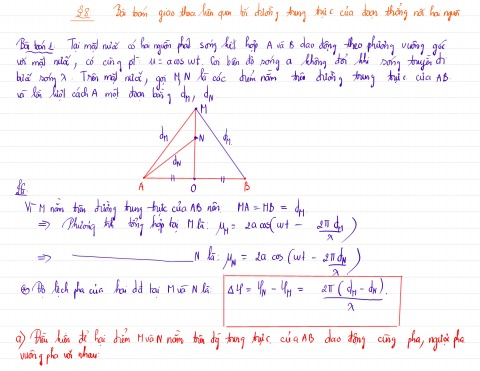 §8. Bài toán giao thoa liên quan tới đường trung trực của đoạn thẳng nối hai nguồn
Bài toán 1: Tại mặt nước có hai nguồn phát sóng kết hợp A và B dao động theo phương vuông góc
với mặt nước, có cùng pt u = acos wt. Coi biên độ sóng a không đổi khi sóng truyền đi
bước sóng λ. Trên mặt nước, gọi M, N là các điểm nằm trên đường trung trực của AB
và lần lượt cách A một đoạn bằng d_M, d_N
M
d_M
N
d_M
d_N
A O B
Vì M nằm trên đường trung trực của AB nên MA = MB = d_M
⇒ Phương trình tổng hợp tại M là: u_M = 2a cos(wt - 2πd_M/λ)
⇒ ———— N là: u_N = 2a cos(wt - 2πd_N/λ)
Độ lệch pha của hai dđ tại M và N là: Δφ = φ_N - φ_M = 2π(d_M - d_N)/λ.
a) Điều kiện để hai điểm M và N nằm trên đg trung trực của AB dao động cùng pha, ngược pha
vuông pha với nhau: